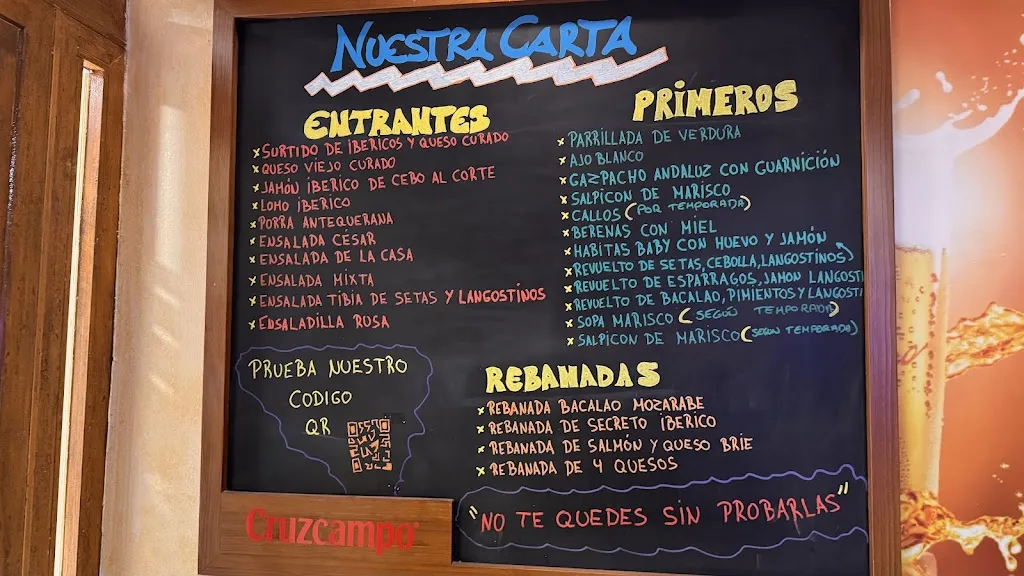 NUESTRA CARTA
ENTRANTES
x SURTIDO DE IBERICOS Y QUESO CURADO
x QUESO VIEJO CURADO
x JAMÓN IBERICO DE CEBO AL CORTE
x LOMO IBERICO
x PORRA ANTEQUERANA
x ENSALADA CÉSAR
x ENSALADA DE LA CASA
x ENSALADA MIXTA
x ENSALADA TIBIA DE SETAS Y LANGOSTINOS
x ENSALADILLA RUSA
PRIMEROS
x PARRILLADA DE VERDURA
x AJO BLANCO
x GAZPACHO ANDALUZ CON GUARNICIÓN
x SALPICON DE MARISCO
x CALLOS (POR TEMPORADA)
x BERENAS CON MIEL
x HABITAS BABY CON HUEVO Y JAMÓN
x REVUELTO DE SETAS, CEBOLLA, LANGOSTINOS
x REVUELTO DE ESPARRAGOS, JAMON LANGOSTI
x REVUELTO DE BACALAO, PIMIENTOS Y LANGOSTI
x SOPA MARISCO (SEGÚN TEMPORADA)
x SALPICON DE MARISCO (SEGÚN TEMPORADA)
PRUEBA NUESTRO
CODIGO
QR
REBANADAS
x REBANADA BACALAO MOZARABE
x REBANADA DE SECRETO IBERICO
x REBANADA DE SALMÓN Y QUESO BRIE
x REBANADA DE 4 QUESOS
"NO TE QUEDES SIN PROBARLAS"
Cruzcampo